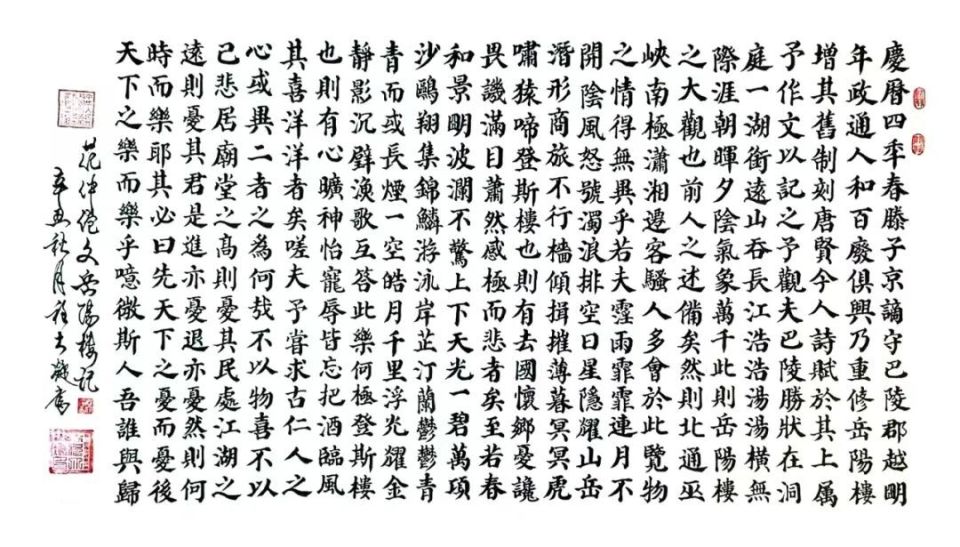 慶曆四年春滕子京謫守巴陵郡越明
年政通人和百廢俱興乃重修岳陽樓
增其舊制刻唐賢今人詩賦於其上属
予作文以記之予觀夫巴陵勝狀在洞
庭一湖銜遠山吞長江浩浩湯湯橫無
際涯朝暉夕陰氣象萬千此則岳陽樓
之大觀也前人之述備矣然則北通巫
峽南極瀟湘遷客騷人多會於此覽物
之情得無異乎若夫霪雨霏霏連月不
開陰風怒號濁浪排空日星隱耀山岳
潛形商旅不行檣傾揖摧薄暮冥冥虎
嘯猿啼登斯樓也則有去國懷鄉憂讒
畏譏滿目蕭然感極而悲者矣至若春
和景明波瀾不驚上下天光一碧萬頃
沙鷗翔集錦鱗游泳岸芷汀蘭鬱鬱青
青而或長煙一空皓月千里浮光耀金
靜影沉璧漁歌互答此樂何極登斯樓
也則有心曠神怡寵辱皆忘把酒臨風
其喜洋洋者矣嗟夫予嘗求古仁人之
心或異二者之為何哉不以物喜不以
己悲居廟堂之高則憂其民處江湖之
遠則憂其君是進亦憂退亦憂然則何
時而樂耶其必曰先天下之憂而憂後
天下之樂而樂乎噫微斯人吾誰與歸
范仲淹文岳陽樓記
辛丑秋月程大書